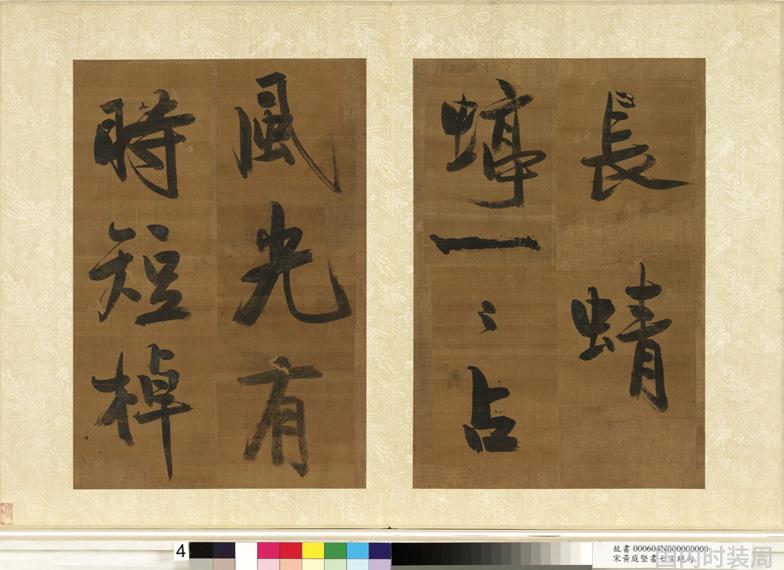 長蜻
蜓一〻占
風光有
時短棹
4
故書 000604N000000000
宋黃庭堅書
国内时装周